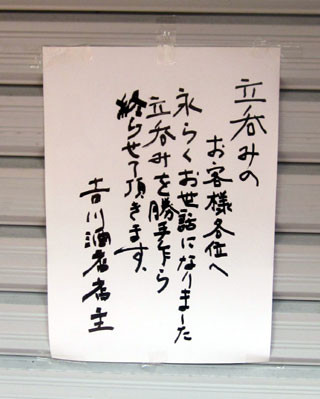 立呑みの
お客様各位へ
永らくお世話になりました
立呑みを勝手乍ら
終らせて頂きます。
吉川酒店店主